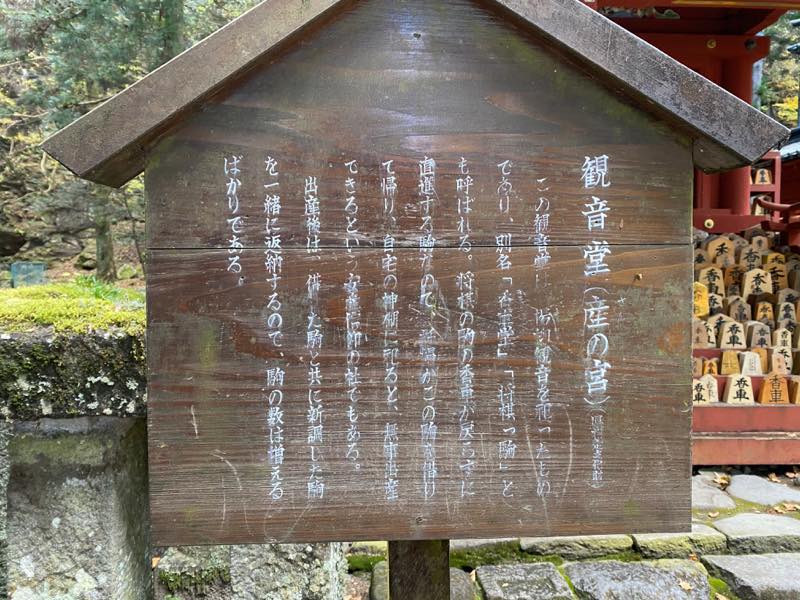 観音堂(産の宮)
さん
この観音堂は 観音を祀ったもの
であり、別名「香車堂」「将棋の駒」と
も呼ばれる。将棋の駒の香車が戻らずに
直進する駒なので、 がこの駒を借り
て帰り、自宅の神棚に祀ると、無事出産
できるという安産信仰の社でもある。
出産後は、借りた駒と共に新調した駒
を一緒に返納するので、駒の数は増える
ばかりである。
香車
香車
香車
香車
香車
香車